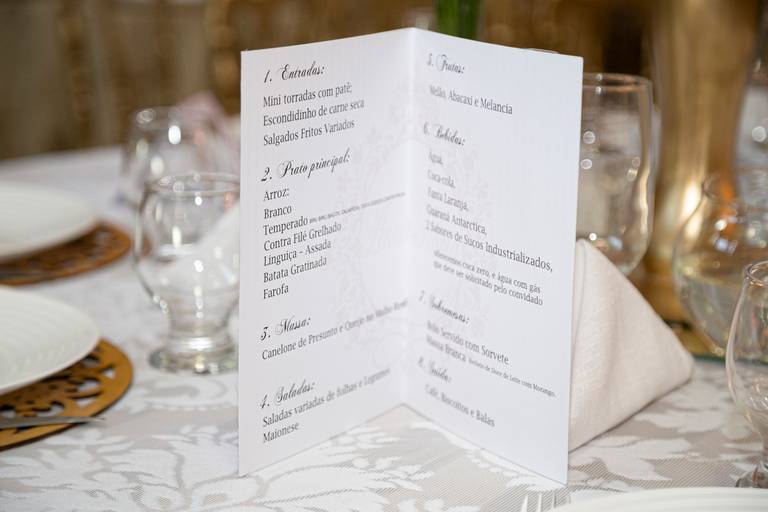 1. Entradas:
Mini torradas com patê;
Escondidinho de carne seca
Salgados Fritos Variados
2. Prato principal:
Arroz:
Branco
Temperado
Contra Filé Grelhado
Linguiça - Assada
Batata Gratinada
Farofa
3. Massa:
Canelone de Presunto e Queijo ao Molho Rosé
4. Saladas:
Saladas variadas de folhas e Legumes
Maionese
5. Frutas:
Melão, Abacaxi e Melancia
6. Bebidas:
Água,
Coca-cola,
Fanta Laranja,
Guaraná Antarctica,
2 Sabores de Sucos Industrializados,
oferecemos coca zero, e água com gás
que deve ser solicitado pelo convidado
7. Sobremesas:
Bolo Servido com Sorvete
Massa Branca Recheio de Doce de Leite com Morango.
8. Saída:
Café, Biscoitos e Balas